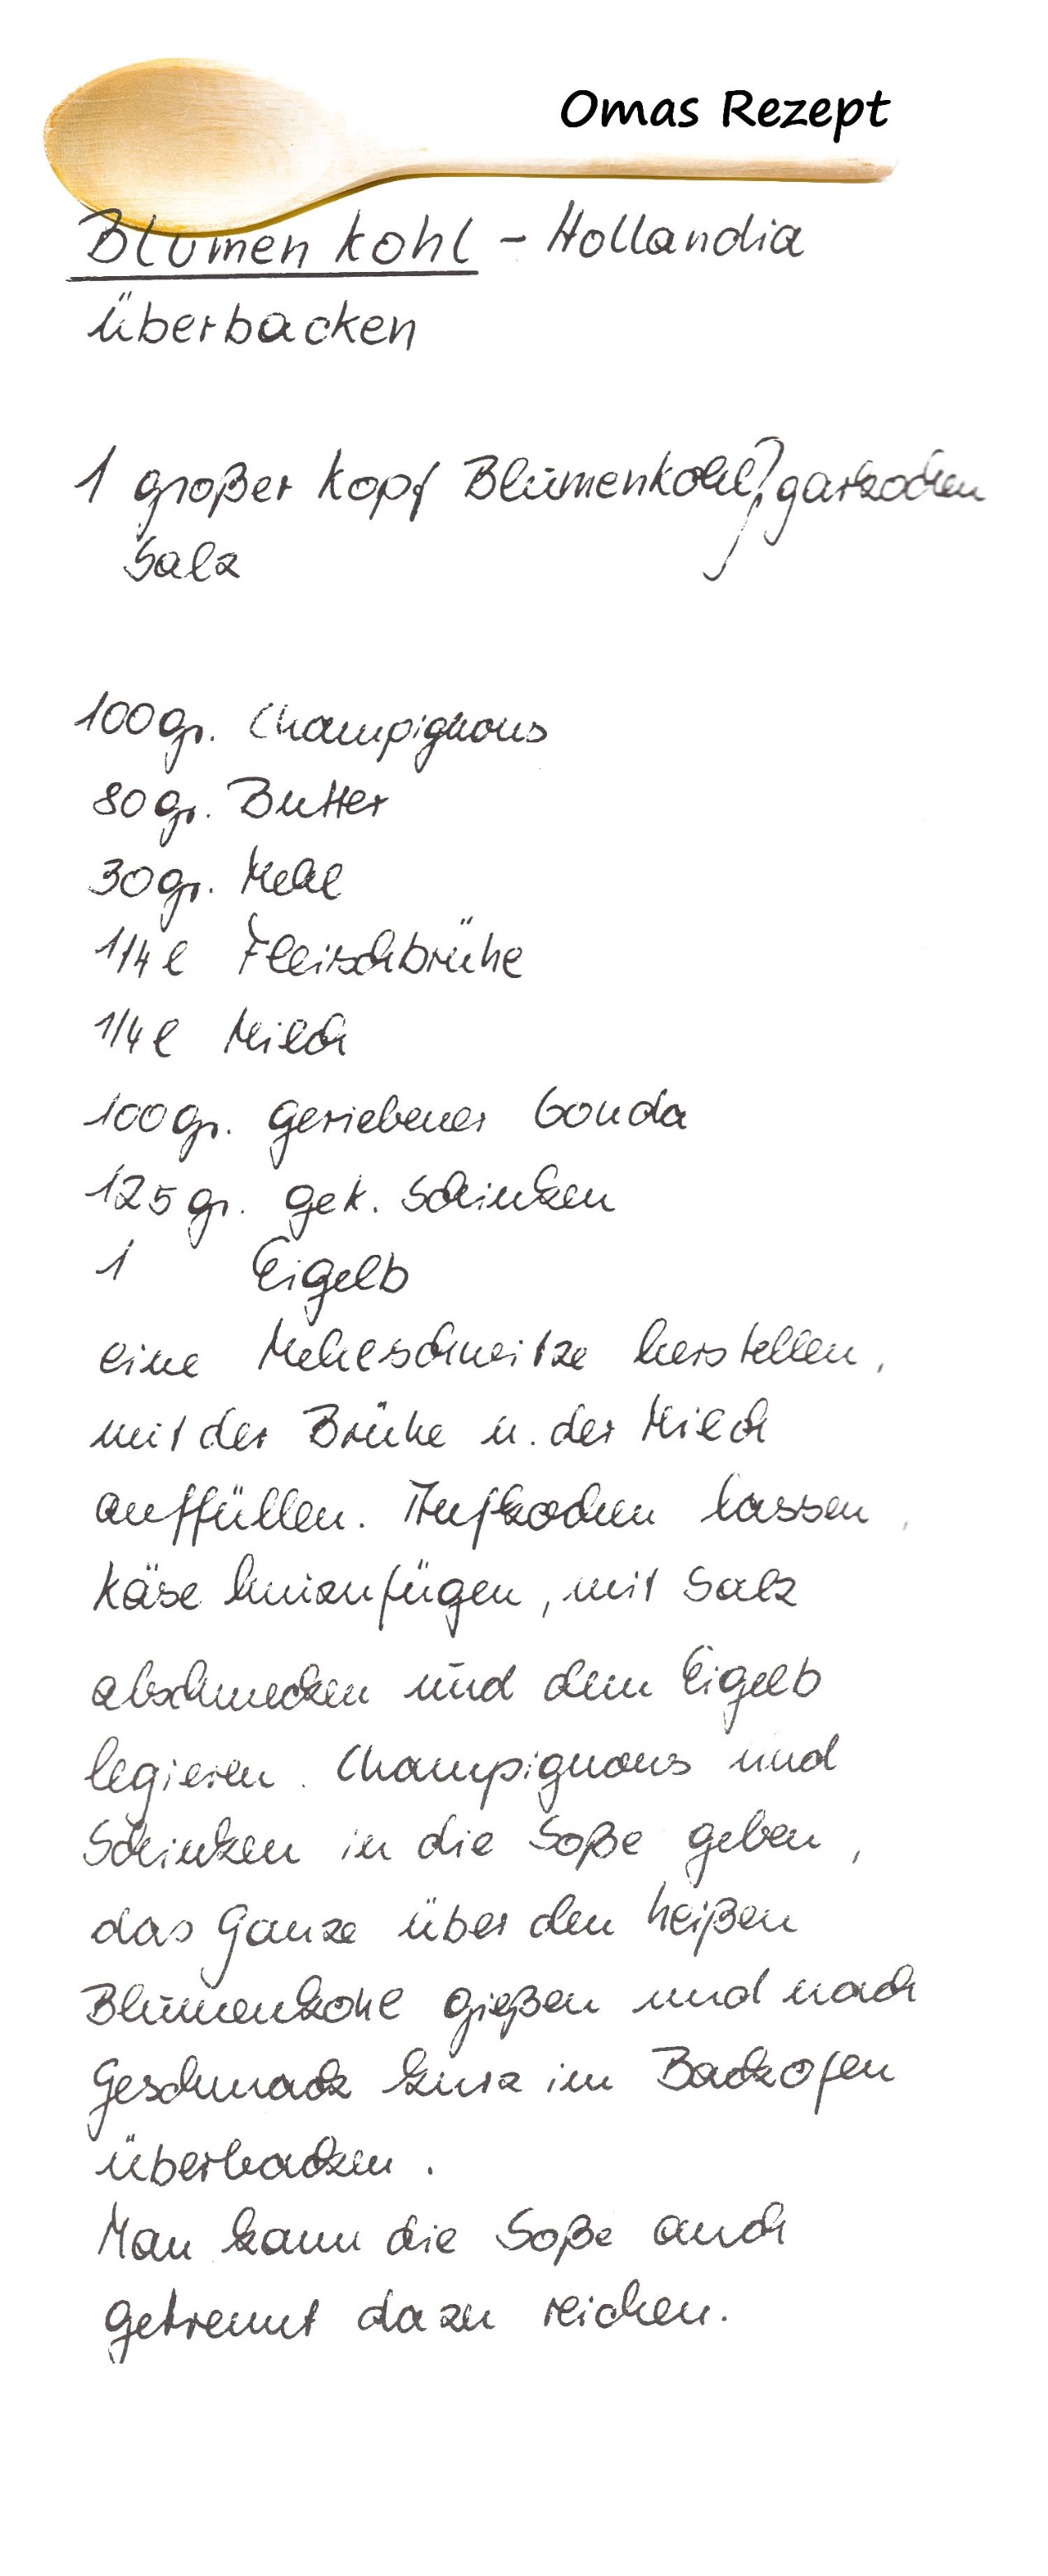 Omas Rezept
Blumenkohl - Hollandia
überbacken
1 großer Kopf Blumenkohl } garkochen
Salz
100 gr. Champignons
80 gr. Butter
30 gr. Mehl
1/4 l Fleischbrühe
1/4 l Milch
100 gr. geriebener Gouda
125 gr. gek. Schinken
1 Eigelb
eine Mehlschwitze herstellen,
mit der Brühe u. der Milch
auffüllen. Aufkochen lassen,
Käse hinzufügen, mit Salz
abschmecken und dem Eigelb
legieren. Champignons und
Schinken in die Soße geben,
das Ganze über den heißen
Blumenkohl gießen und nach
Geschmack kurz im Backofen
überbacken.
Man kann die Soße auch
getrennt dazu reichen.